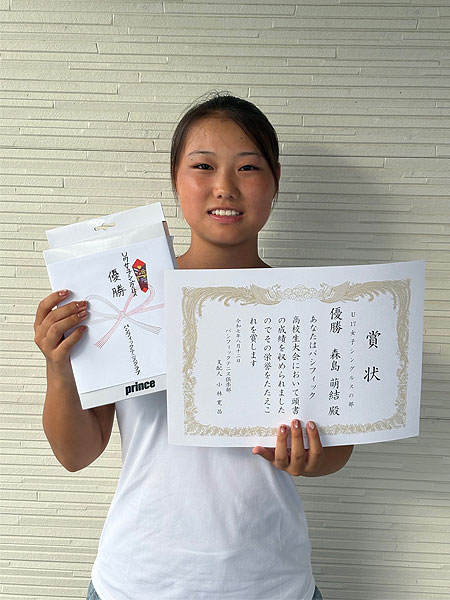 U17女子シングルス
優勝
パシフィックテニスクラブ
prince
賞状
U17女子シングルスの部
優勝 森島 萌結 殿
あなたはパシフィック
高校生大会において頭書
の成績を収められました
のでその栄誉をたたえこ
れを賞します
令和七年八月十二日
パシフィックテニス倶楽部
支配人 小林 寛昌